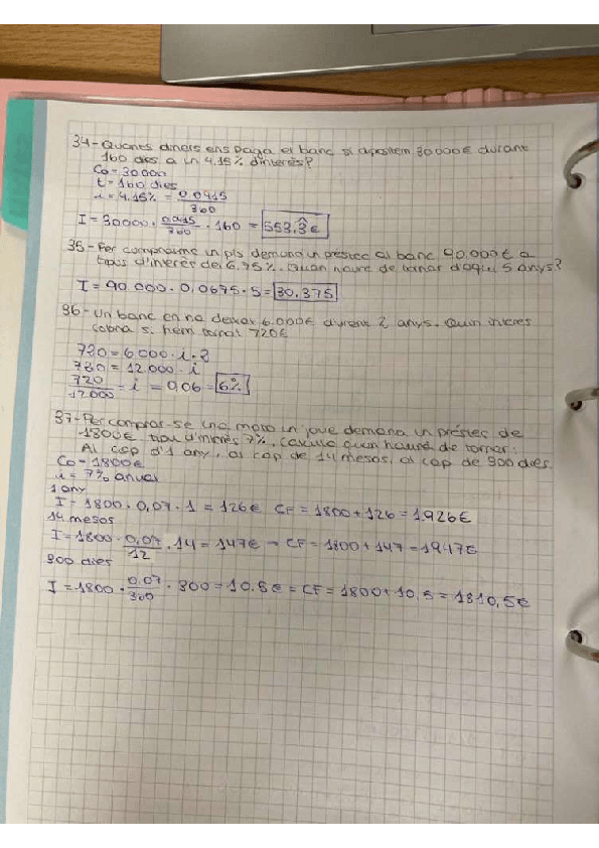 34-Quants diners ens paga el banc si dipositem 30000€ durant
160 dies a un 4.15% d'interès?
Co= 30000
t= 160 dies
i= 4.15% = 0,0415/360
I = 30000 · 0,0415/360 · 160 = 553,3̂€
35-Per comprarme un pis demano un préstec al banc 90.000€ a
tipus d'interès del 6.75%. Quan hauré de tornar d'aquí 5 anys?
I = 90.000 · 0,0675 · 5 = 30.375
36- Un banc en na deixar 6.000€ durant 2 anys. Quin interes
cobra si hem tornat 720€
720 = 6.000 · i · 2
720 = 12.000 · i
720/12000 = i = 0,06 = 6%
37-Per comprar-se una moto un jove demana un préstec de
1800€ tipus d'interés 7%. Calcula quan haurà de tornar:
Al cap d'1 any, al cap de 14 mesos, al cap de 300 dies.
Co= 1800€
i = 7% anual
1 any
I = 1800 · 0,07 · 1 = 126€ CF = 1800 + 126 = 1.926€
14 mesos
I = 1800 · 0,07/12 · 14 = 147€ → CF = 1800 + 147 = 1947€
300 dies
I = 1800 · 0,07/360 · 300 = 10.5€ = CF = 1800 + 10,5 = 1810,5€